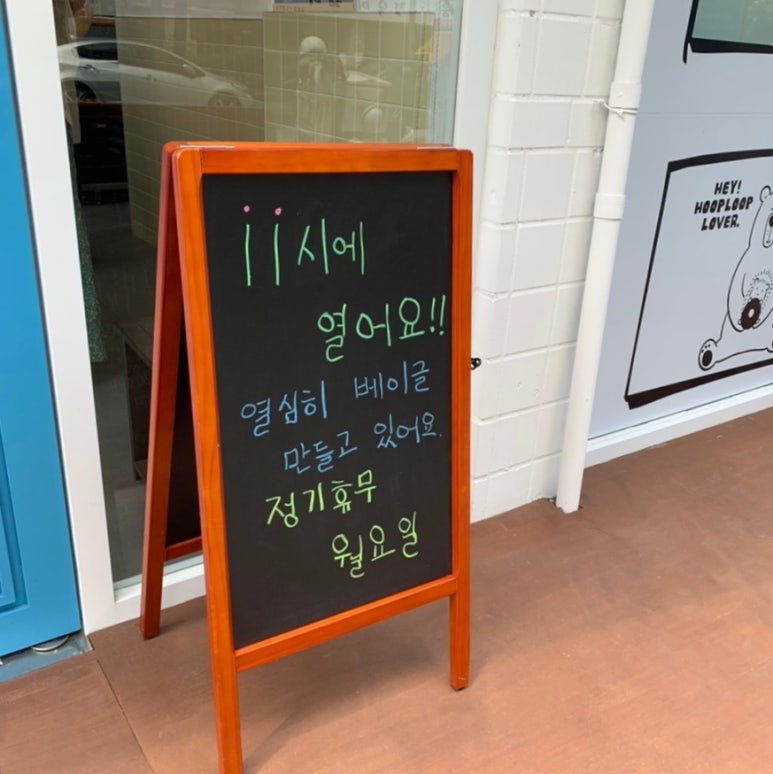 11시에
열어요!!
열심히 베이글
만들고 있어요.
정기휴무
월요일
HEY!
HOOPLOOP
LOVER.